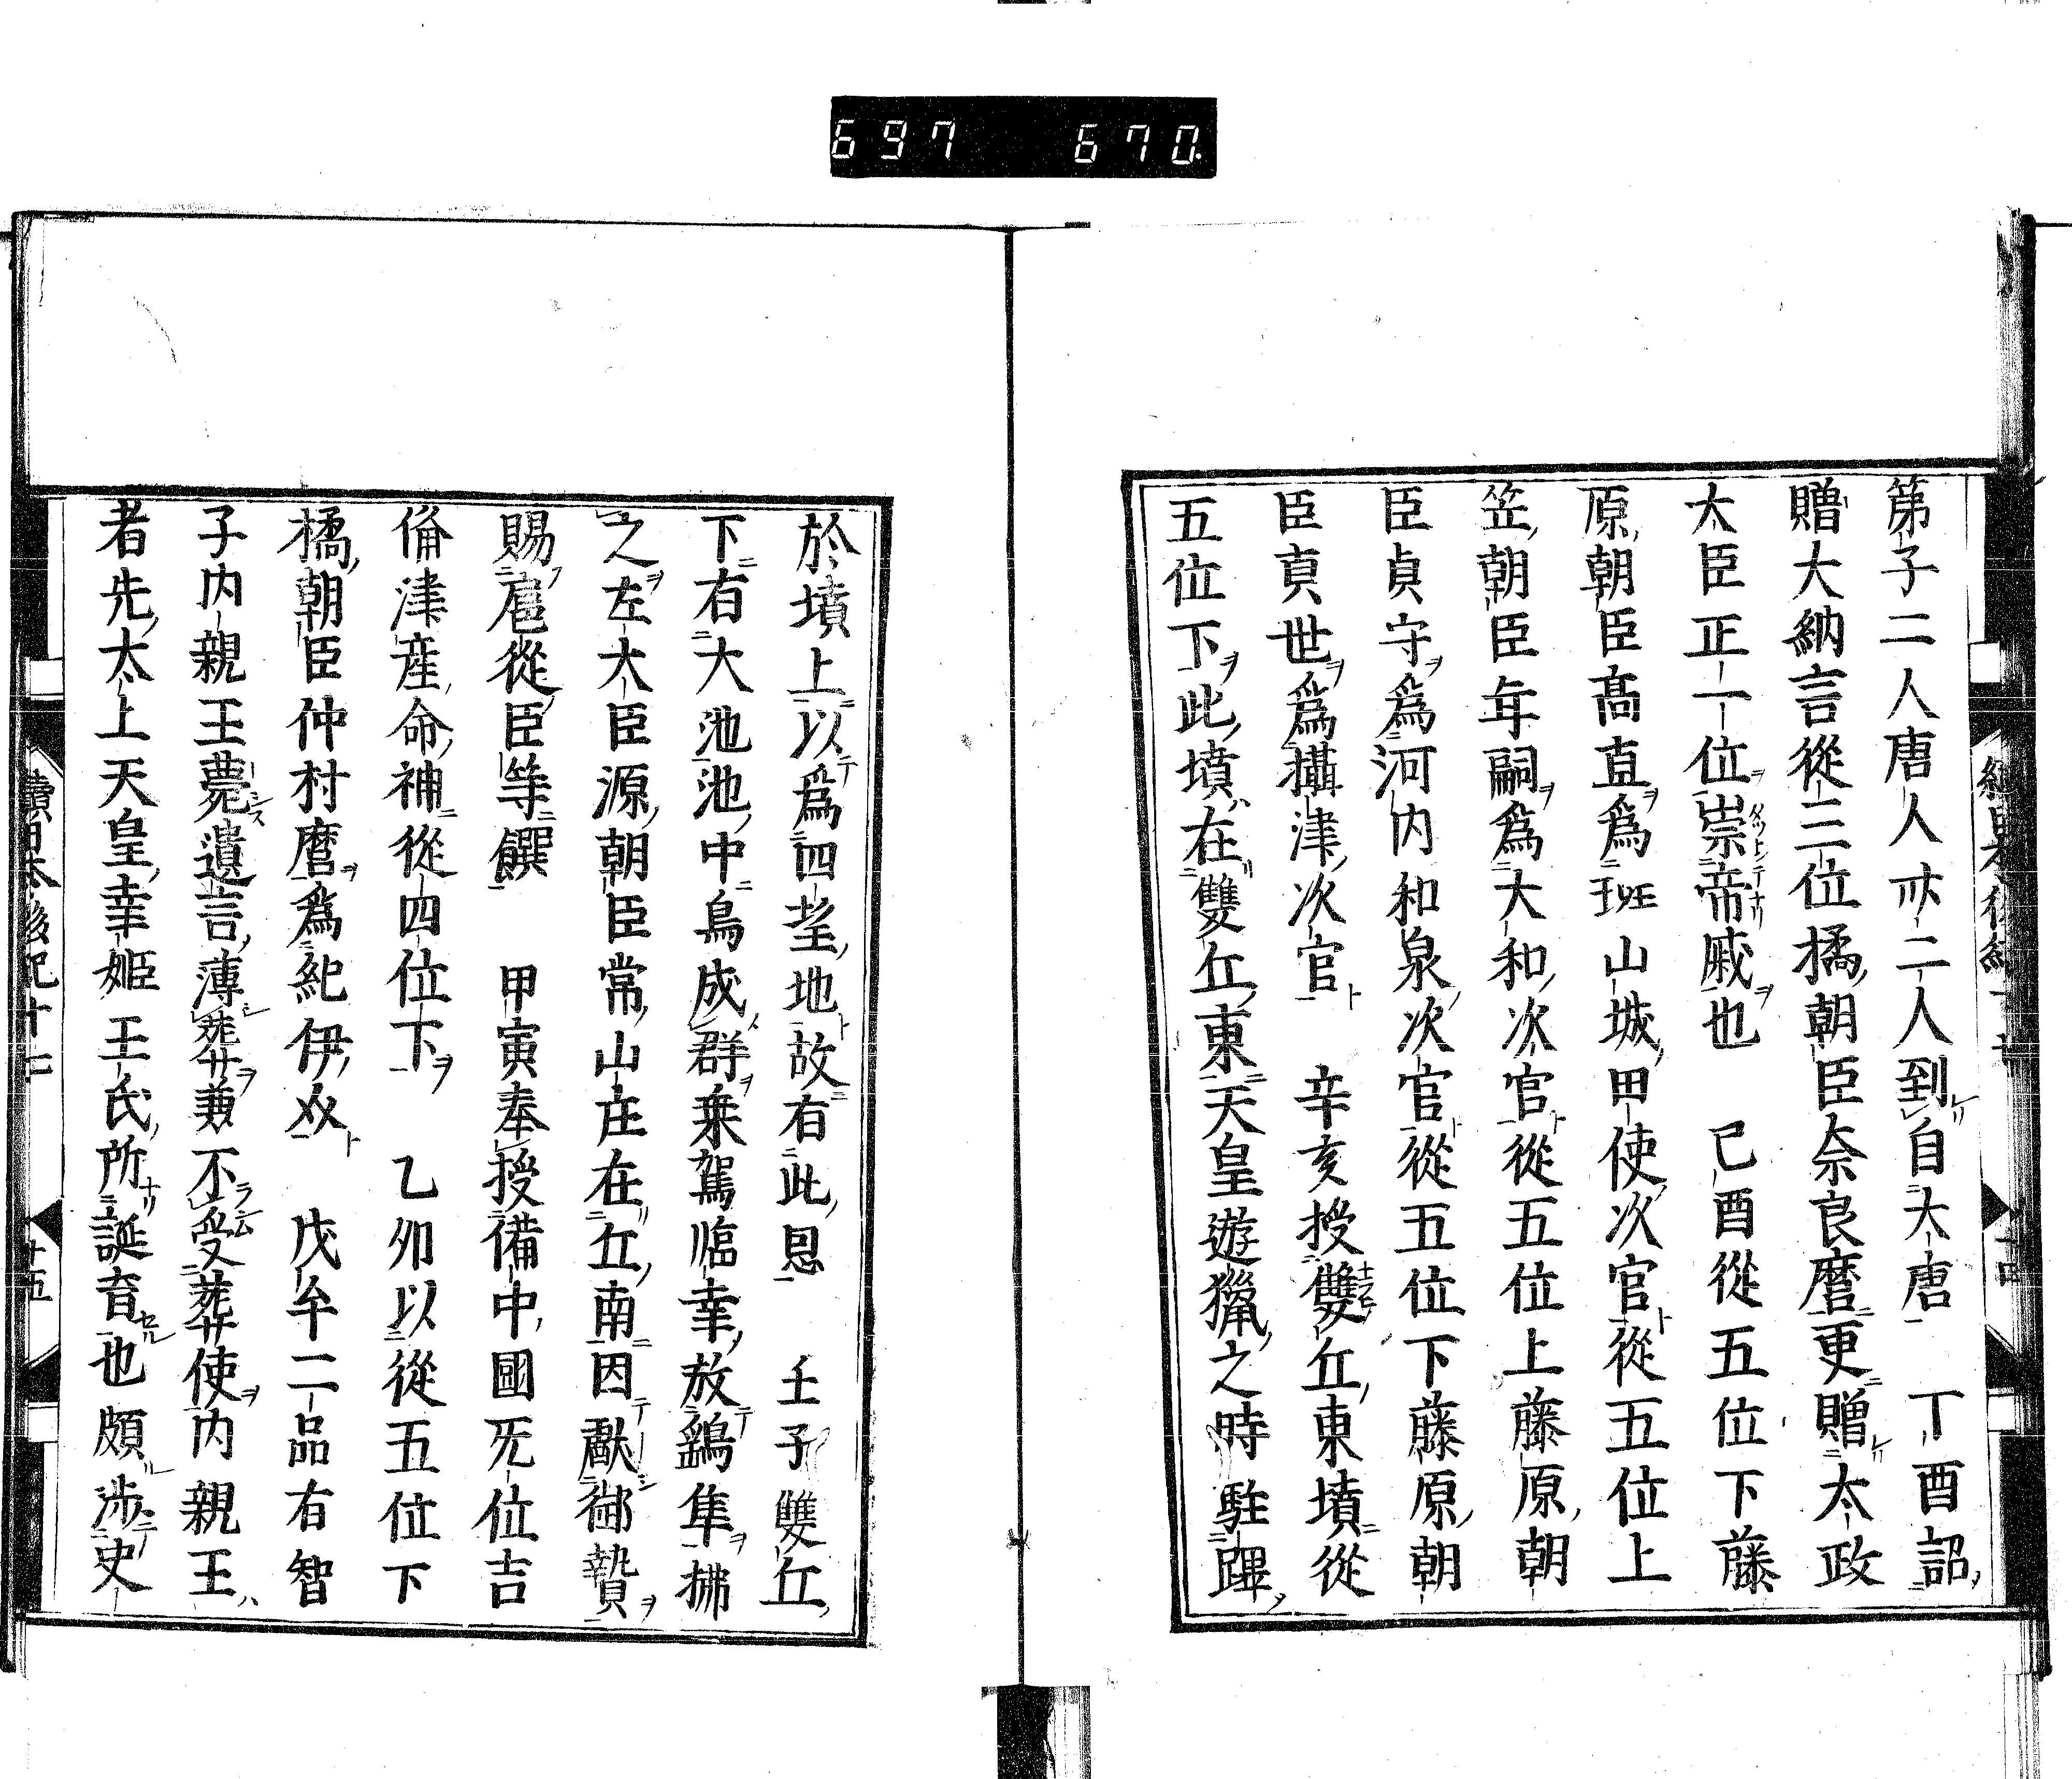 697 670
第子二人唐人亦二人到自太唐 丁酉詔
贈大納言從三位橘朝臣奈良麿更贈太政
大臣正一位崇帝戚也 己酉從五位下藤
原朝臣高直爲班山城田使次官從五位上
笠朝臣年嗣爲大和次官從五位上藤原朝
臣貞守爲河内和泉次官從五位下藤原朝
臣眞世爲攝津次官 辛亥授雙丘東墳從
五位下此墳在雙丘東天皇遊獵之時駐蹕
於墳上以爲四望地故有此恩 壬子雙丘
下有大池池中鳥成群乗駕臨幸放鷂隼拂
之左大臣源朝臣常山庄在丘南因獻御贄
賜扈從臣等饌 甲寅奉授備中國旡位吉
備津彦命神從四位下 乙夘以從五位下
橘朝臣仲村麿爲紀伊公 戊午二品有智
子内親王薨遺言薄葬兼不受葬使内親王
者先太上天皇幸姫王氏所誕育也頗渉史
續日本後紀十七
十五